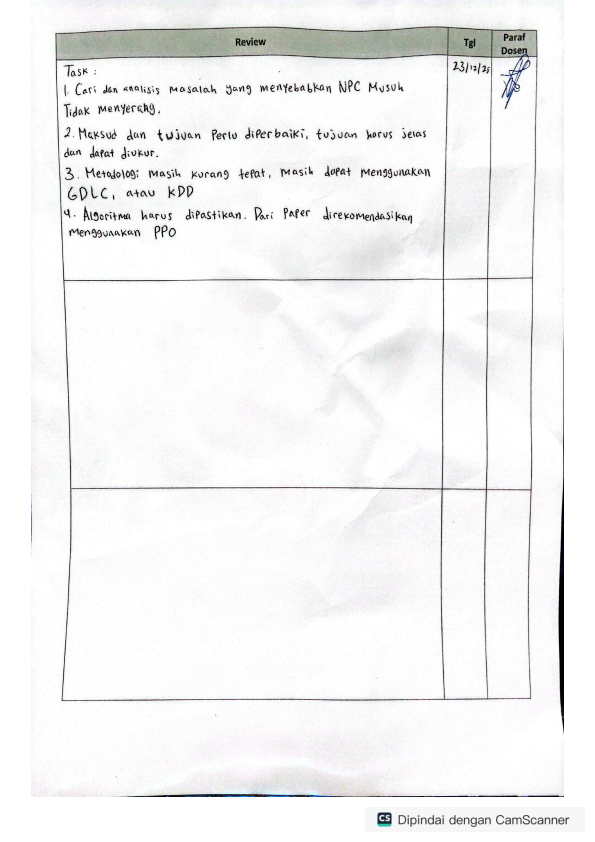 Review
Tgl
Paraf
Dosen
Task :
23/12/25
1. Cari dan analisis masalah yang menyebabkan NPC Musuh
Tidak menyerang.
2. Maksud dan tujuan Perlu diperbaiki, tujuan harus jelas
dan dapat diukur.
3. Metodologi masih kurang tepat, masih dapat menggunakan
GDLC, atau KDD
4. Algoritma harus dipastikan. Dari Paper direkomendasikan
menggunakan PPO
CS Dipindai dengan CamScanner